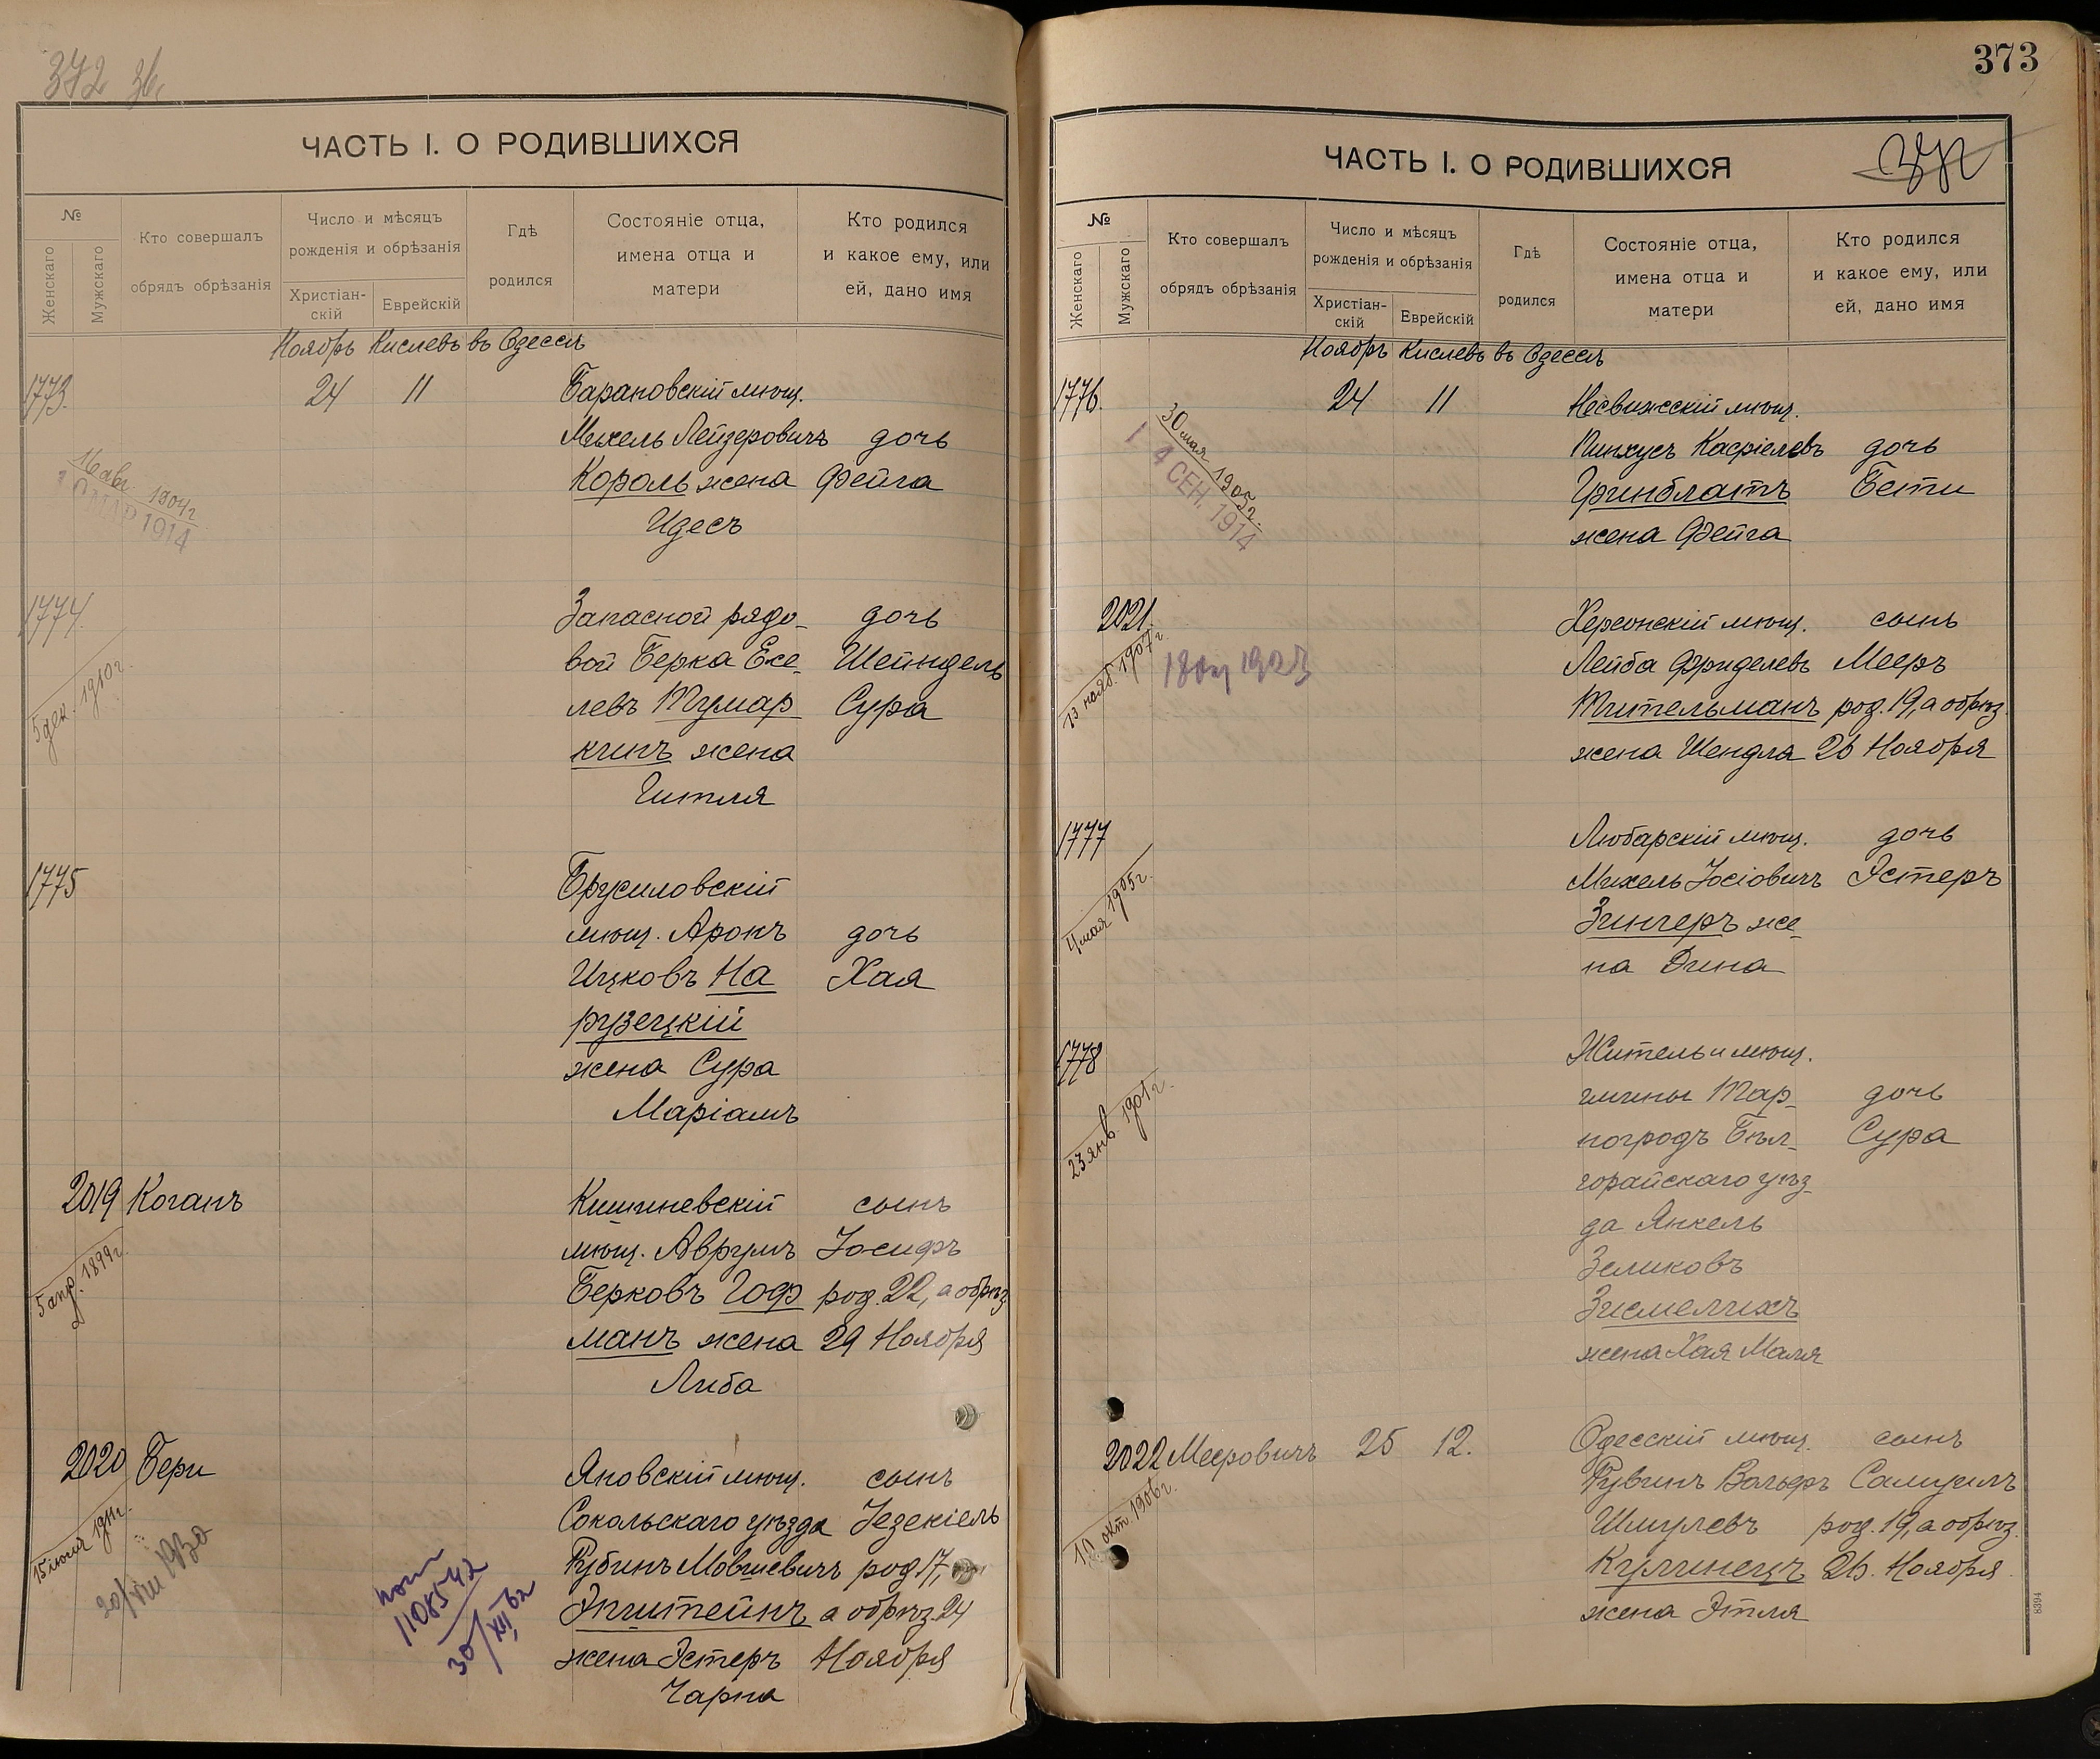 372 зв.
ЧАСТЬ I. О РОДИВШИХСЯ
№
Женскаго
Мужскаго
Кто совершалъ
обрядъ обрѣзанія
Число и мѣсяцъ
рожденія и обрѣзанія
Христіан-
скій
Еврейскій
Гдѣ
родился
Состояніе отца,
имена отца и
матери
Кто родился
и какое ему, или
ей, дано имя
Ноябрь Кислевъ въ Одессѣ
1773. 24 11 Барановскій мѣщ.
Михель Лейзеровичъ дочь
Король жена Фейга
Идесъ
16 авг. 1904 г.
МАР 1914
1774. Запасной рядо- дочь
вой Берка Есе- Шейндель
левъ Тумар- Сура
кинъ жена
Гитля
5 дек. 1910 г.
1775 Брусиловскій
мѣщ. Аронъ дочь
Ицковъ На Хая
рузецкій
жена Сура
Маріамъ
2019 Коганъ Кишиневскій сынъ
мѣщ. Аврумъ Іосифъ
Берковъ Гоф род. 22, а обрѣз.
манъ жена 29 Ноября
Либа
5 апр. 1899 г.
2020 Бери Яновскій мѣщ. сынъ
Сокольскаго уѣзда Іезекіель
Рубинъ Мовшевичъ род 17,
Эпштейнъ а обрѣз. 24
жена Эстеръ Ноября
Чарна
15 іюля 1911 г.
20/VIII 1930
1108542
30/XII
373
ЧАСТЬ I. О РОДИВШИХСЯ
№
Женскаго
Мужскаго
Кто совершалъ
обрядъ обрѣзанія
Число и мѣсяцъ
рожденія и обрѣзанія
Христіан-
скій
Еврейскій
Гдѣ
родился
Состояніе отца,
имена отца и
матери
Кто родился
и какое ему, или
ей, дано имя
Ноябрь Кислевъ въ Одессѣ
1776. 24 11 Несвижскій мѣщ.
Пинхусъ Касріелевъ дочь
Гринблатъ Бети
жена Фейга
30 мая 1905 г.
4 СЕН. 1914
2021. Херсонскій мѣщ. сынъ
Лейба Фриделевъ Мееръ
Тительманъ род. 19, а обрѣз.
жена Шендла 26 Ноября
13 нояб. 1907 г.
1923
1777 Любарскій мѣщ. дочь
Михель Іосіовичъ Эстеръ
Зингеръ же-
на Дина
4 мая 1905 г.
1778 Житель и мѣщ.
гмины Тар- дочь
ногродъ Бѣл- Сура
горайскаго уѣз-
да Янкель
Зеликовъ
Зисмелихъ
жена Хая Маля
23 янв. 1901 г.
2022 Мееровичъ 25 12. Одесскій мѣщ. сынъ
Рувинъ Вольфъ Самуилъ
Шмулевъ род. 19, а обрѣз.
Куличнецъ 26. Ноября
жена Этля
10 окт. 1906 г.
8394